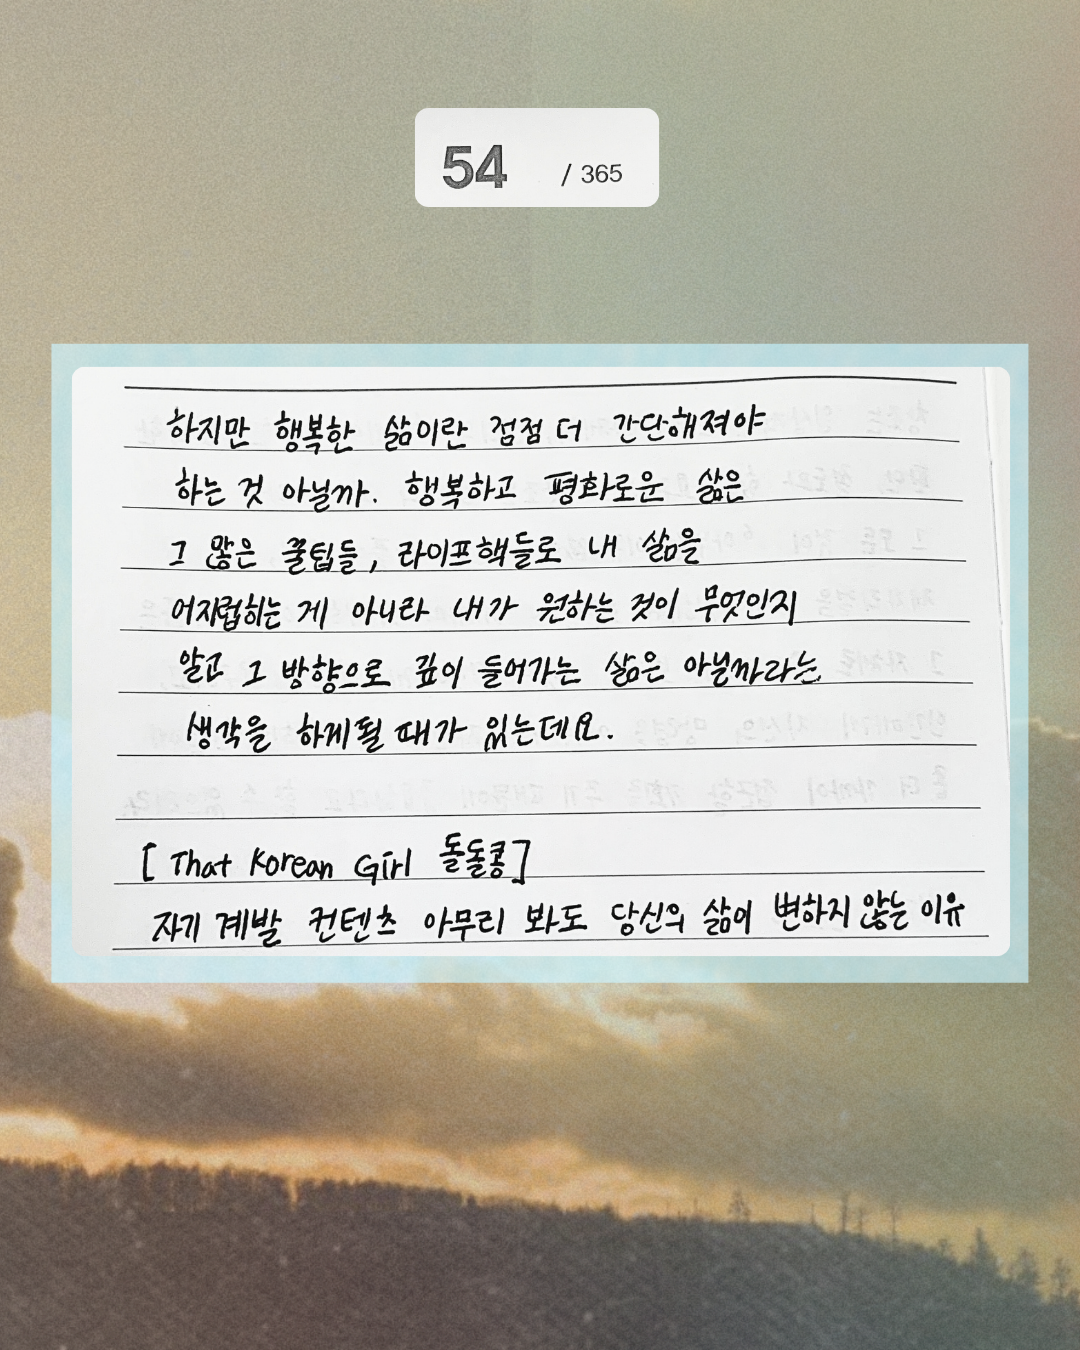 54 / 365
하지만 행복한 삶이란 점점 더 간단해져야
하는 것 아닐까. 행복하고 평화로운 삶은
그 많은 꿀팁들, 라이프핵들로 내 삶을
어지럽히는 게 아니라 내가 원하는 것이 무엇인지
알고 그 방향으로 깊이 들어가는 삶은 아닐까라는
생각을 하게될 때가 있는데요.
[ That Korean Girl 돌돌콩]
자기 계발 컨텐츠 아무리 봐도 당신의 삶이 변하지 않는 이유